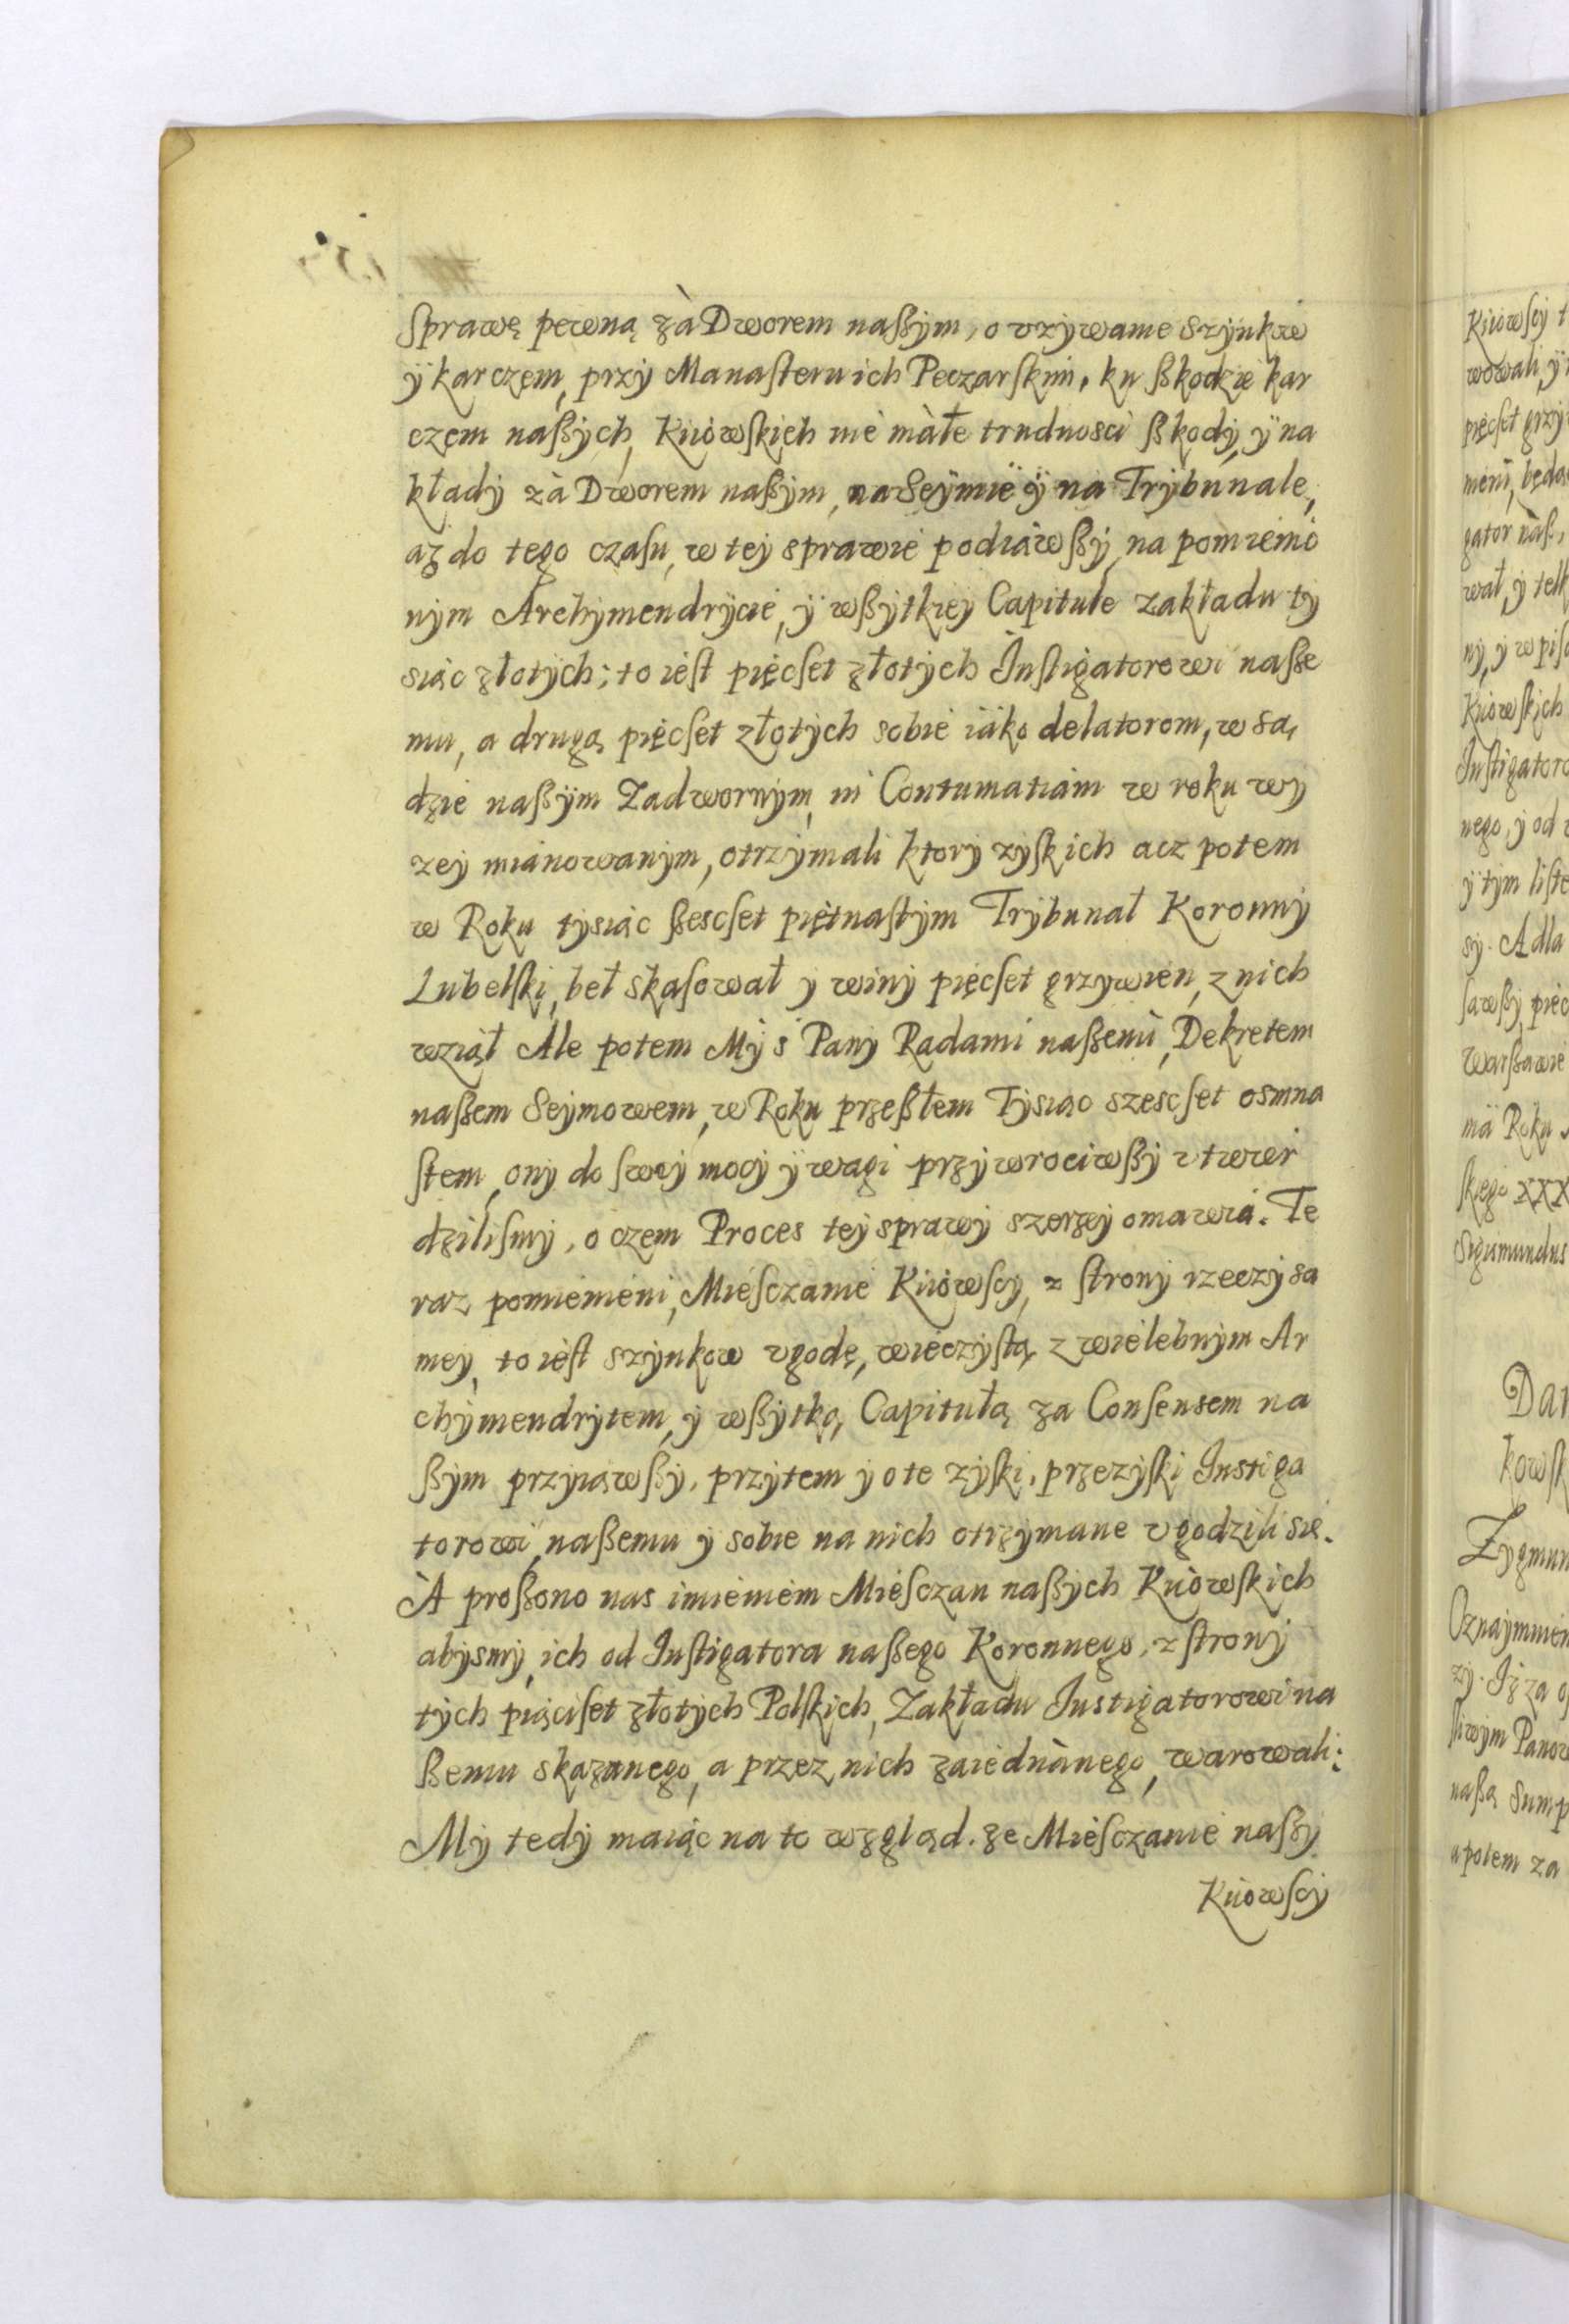 sprawę pewną zà Dworem naßym, o vzywanie szynkow
ÿ karczem, przÿ Manasteru ich Peczarskim, ku ßkodzie kar
czem naßych, Kiiowskich nie màłe trudnosci ßkody, ÿ na
kłady zà Dworem naßym, na Seymie ÿ na Trybunale,
az do tego czasu, w tey sprawie podiàwßy, na pomienio
nym Archymendrycie, ÿ wßytkiey Capitule zakładu ty
siąc złotych; to iest pięcset złotych Instigatorowi naße
mu, a drugą pięcset złotych sobie iàko delatorom, w są,
dzie naßym Zadwornym, in Contumatiam w roku wy
zey mianowanym, otrzymali ktory zyskich acz potem
w Roku tysiąc ßescset piętnastym Trybunał Koronny
Lubelski, beł skasował y winy pięcset grzywien, z nich
wziął Ale potem My s Pany Radami naßemi, Dekretem
naßem Seymowem, w Roku przeßłem Tysiąc szescset osmna
stem, ony do swey mocy ÿ wagi przywrociwßy vtwier
dzilismy, o czem Proces tey sprawy szerzey omawia. Te
raz pomienieni, Miesczanie Kiiowscy, z strony rzeczy sa
mey, to iest szynkow vgodę, wieczystą z wielebnym Ar
chymendrytem, y wßytką, Capitułą za Consensem na
ßym przyiąwßy, przytem y o te zyski, przezyski Instiga
torowi naßemu y sobie na nich otrzymane vgodzili się.
A proßono nas imieniem Miesczan naßych Kiiowskich
abysmy, ich od Instigatora naßego Koronnego, z strony
tych piąciset złotych Polskich, Zakładu Instigatorowi na
ßemu skazanego, a przez nich zaiednànego, warowali:
My tedy maiąc na to wzgląd. ze Miesczanie naßy
Kiiowscy
Kiiowscy t
wowali, ÿ
pięcset grzy
gator nàß,
wał, y
Kiiowskich
Instigatoro
nego, y od
y tym liste
sy. A dla
sawßy, pięc
Warßawie
ma Roku
skiego XXX
Sigismundus
Dan
kowsk
Zygmun
Oznaymuiem
zy. Iz za
sliwym Panow
naßą Sump
a potem za